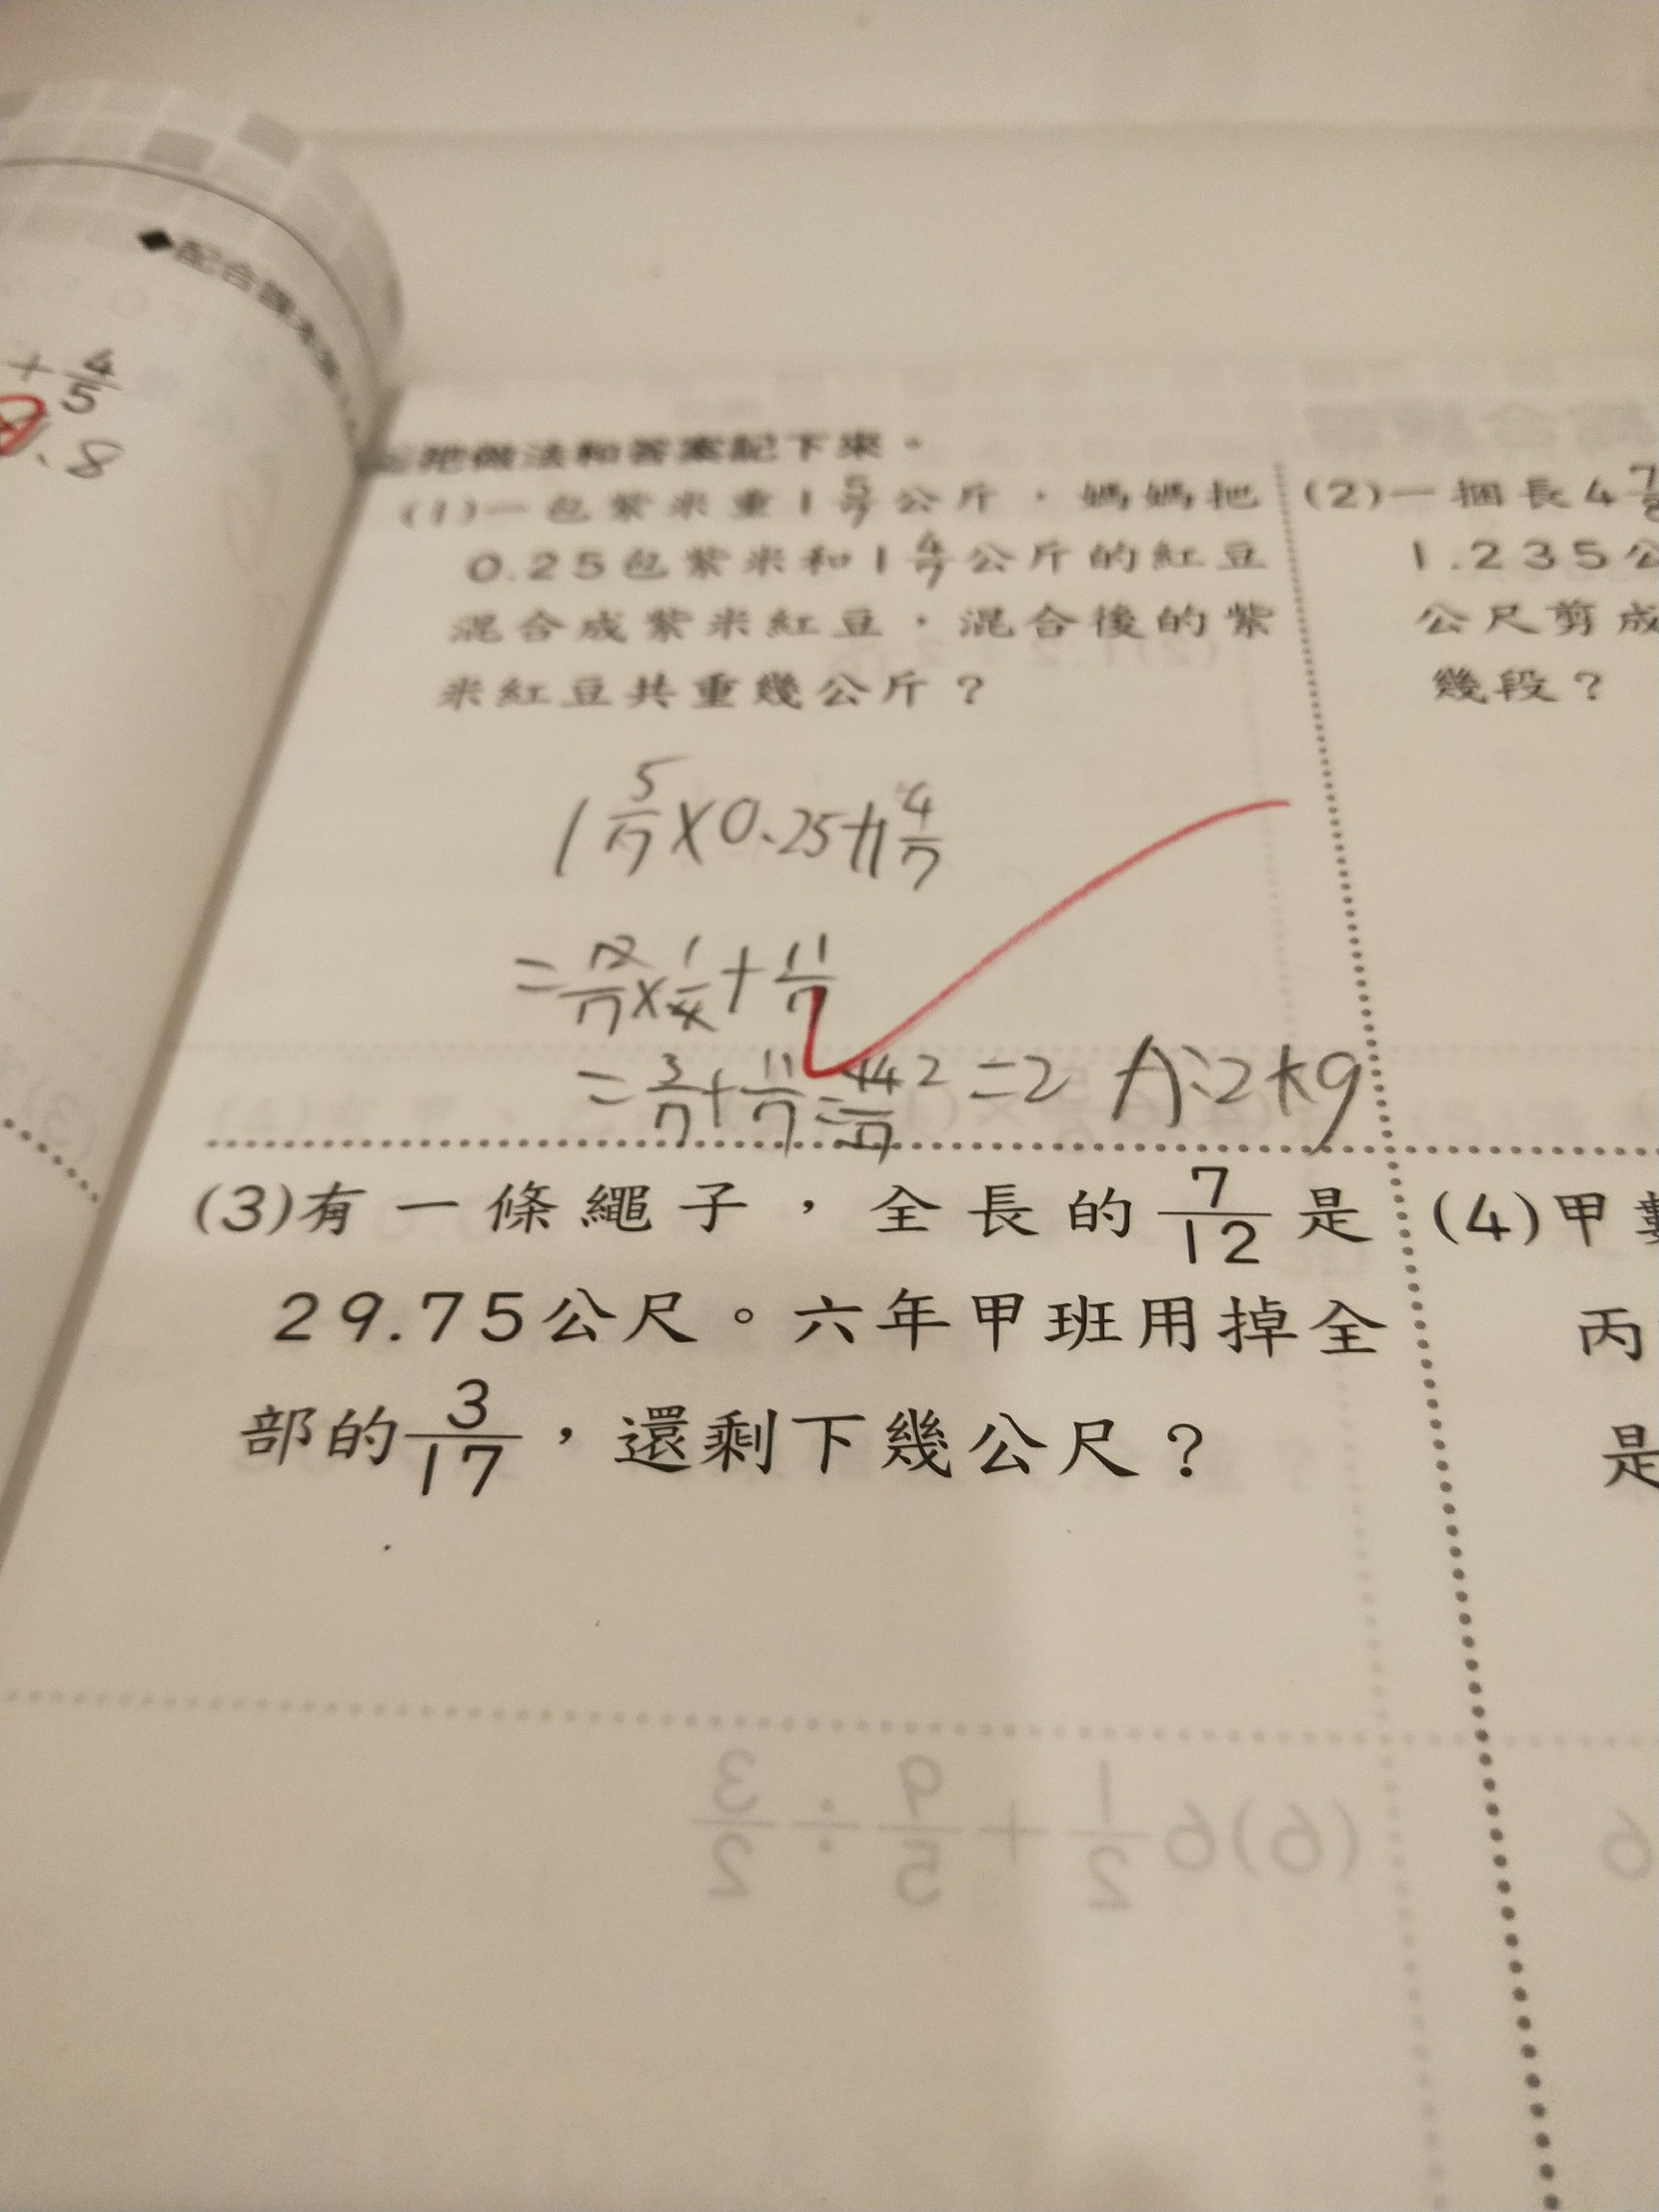 ◆配合課本
+ 4/5
.8
把做法和答案記下來。
(1)一包紫米重1 5/7公斤，媽媽把
0.25包紫米和1 4/7公斤的紅豆
混合成紫米紅豆，混合後的紫
米紅豆共重幾公斤？
1 5/7 × 0.25 + 1 4/7
= 12/7 × 1/4 + 11/7
= 3/7 + 11/7 = 14/7 2 = 2 A:2kg
(2)一捆長4
1.235公
公尺剪成
幾段？
(3)有一條繩子，全長的7/12是
29.75公尺。六年甲班用掉全
部的3/17，還剩下幾公尺？
(4)甲數
丙
是
(6)6 1/2 + 9/5 ÷ 3/2